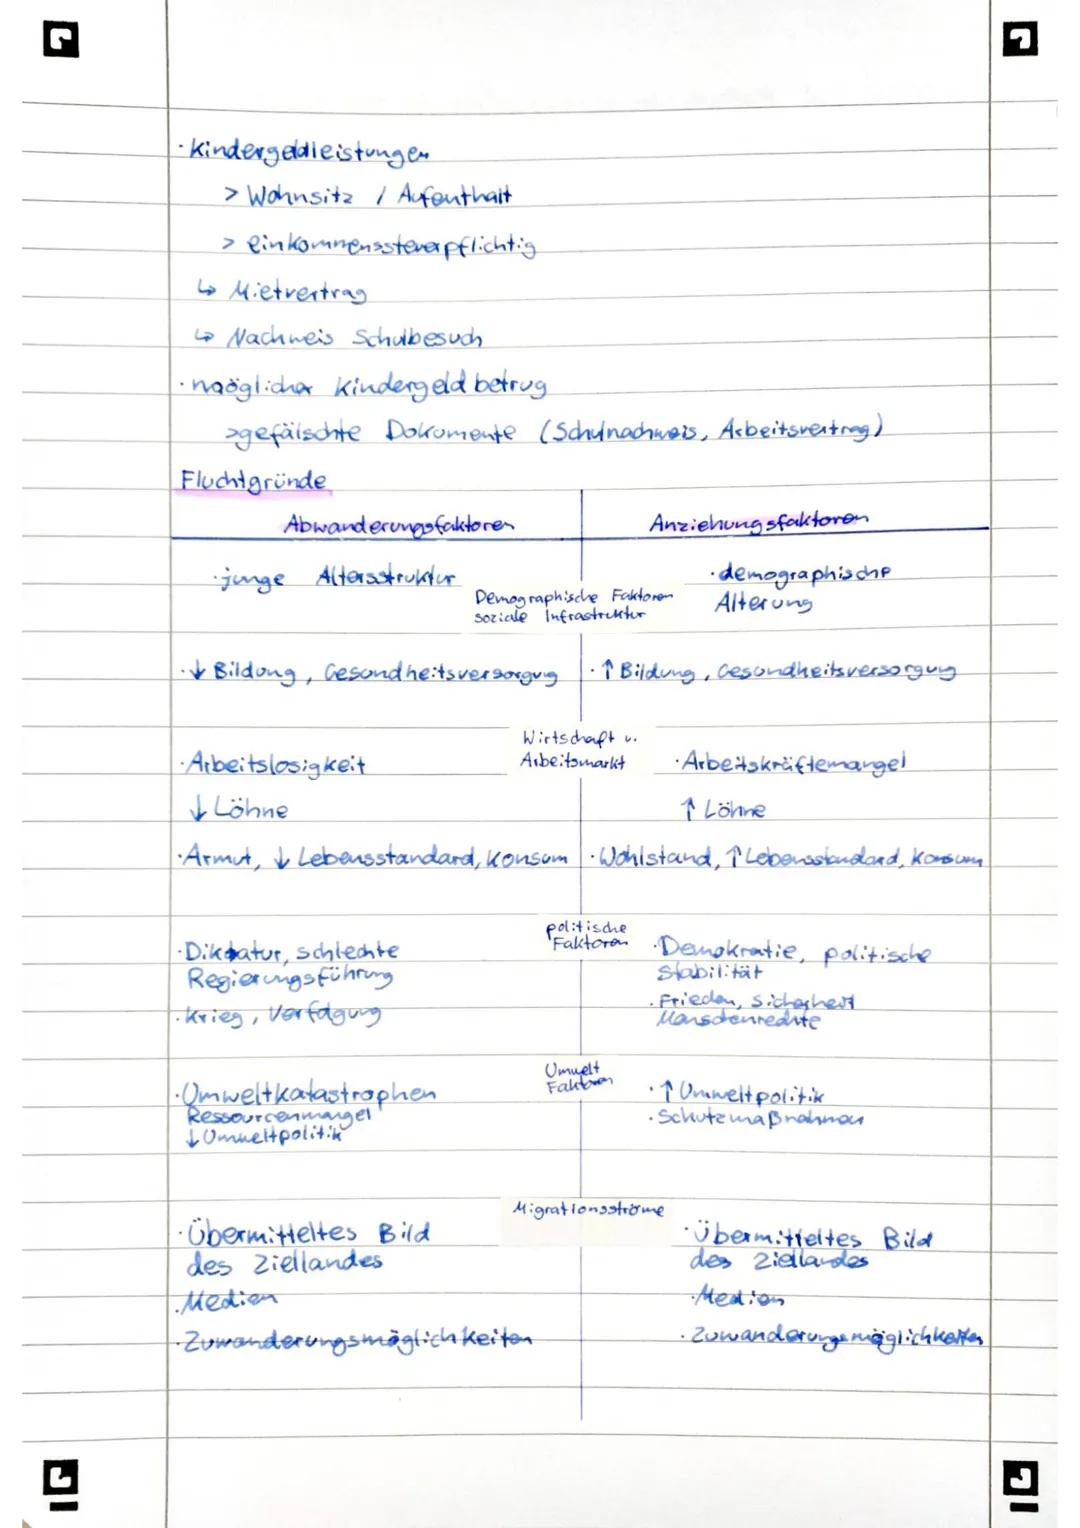 · Kindergeldleistungen
> Wohnsitz / Aufenthalt
> einkommenssteuerpflichtig
↳ Mietvertrag
↳ Nachweis Schulbesuch
· möglicher Kindergeldbetrug
> gefälschte Dokumente (Schulnachweis, Arbeitsvertrag)
Fluchtgründe
Abwanderungsfaktoren Anziehungsfaktoren
· junge Altersstruktur
Demographische Faktoren
soziale Infrastruktur
· demographische
Alterung
· ↓ Bildung, Gesundheitsversorgung · ↑ Bildung, Gesundheitsversorgung
Wirtschaft u.
Arbeitsmarkt
· Arbeitslosigkeit · Arbeitskräftemangel
↓ Löhne ↑ Löhne
· Armut, ↓ Lebensstandard, Konsum · Wohlstand, ↑ Lebensstandard, Konsum
politische
Faktoren
· Diktatur, schlechte
Regierungsführung
· Krieg, Verfolgung
· Demokratie, politische
Stabilität
· Frieden, Sicherheit
Menschenrechte
Umwelt
Faktoren
· Umweltkatastrophen
Ressourcenmangel
↓ Umweltpolitik
· ↑ Umweltpolitik
· Schutzmaßnahmen
Migrationsströme
· Übermitteltes Bild
des Ziellandes
· Medien
· Zuwanderungsmöglichkeiten
· Übermitteltes Bild
des Ziellandes
· Medien
· Zuwanderungsmöglichkeiten